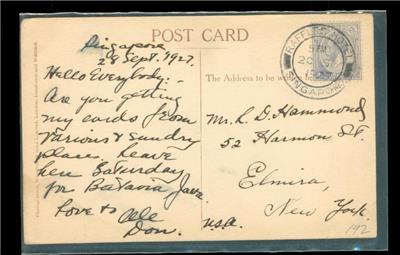 POST CARD
Singapore
28 Sept. 1927.
Hello Everybody:-
Are you getting
my cards from
various & sundry
places, leave
here Saturday
for Batavia Java.
Love to all
Don.
The Address to be
RAFFLES HOTEL
SINGAPORE
Mr. L. D. Hammond
52 Harmon St.
Elmira,
New York.
U.S.A.
192